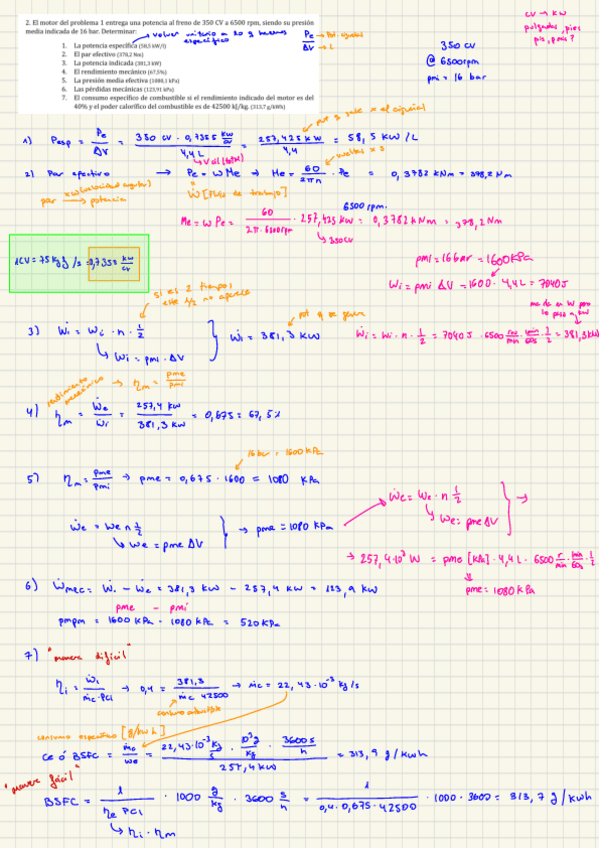 2. El motor del problema 1 entrega una potencia al freno de 350 CV a 6500 rpm, siendo su presión
media indicada de 16 bar. Determinar:
1. La potencia específica (58,5 kW/l)
2. El par efectivo (378,2 Nm)
3. La potencia indicada (381,3 kW)
4. El rendimiento mecánico (67,5%)
5. La presión media efectiva (1080,1 kPa)
6. Las pérdidas mecánicas (123,91 kPa)
7. El consumo específico de combustible si el rendimiento indicado del motor es del
40% y el poder calorífico del combustible es de 42500 kJ/kg. (313,7 g/kWh)
Pe
ΔV → L
CV → KW
pulgadas, pies
350 CV
@ 6500rpm
pmi = 16 bar
1) Pesp = Pe/ΔV = 350 CV · 0,7355 kW/CV / 4,4 L = 257,425 KW / 4,4 = 58,5 KW/L
2) Par efectivo → Pe = ω Me → Me = 60/2πn · Pe = 0,3782 kNm = 378,2Nm
par → potencia
Ẇ [Flujo de trabajo]
6500 rpm.
Me = ω Pe = 60/2π·6500rpm · 257,425 KW = 0,3782 KNm = 378,2Nm
350CV
1CV = 75 Kgf/s = 0,7355 KW/CV
pmi = 16bar = 1600KPa
Wi = pmi ΔV = 1600 · 4,4L = 7040J
si es 2 tiempos
este 1/2 no aparece
3) Ẇi = Wi · n · 1/2
Wi = pmi · ΔV
Ẇi = 381,3 KW
Ẇi = Wi · n · 1/2 = 7040J · 6500 rev/min · min/60s · 1/2 = 381,3KW
rendimiento mecánico → ηm = pme/pmi
4) ηm = Ẇe/Ẇi = 257,4 KW / 381,3 KW = 0,675 = 67,5%
16bar = 1600KPa
5) ηm = pme/pmi → pme = 0,675 · 1600 = 1080 KPa
Ẇe = We n 1/2
We = pme ΔV
→ pme = 1080 KPa
Ẇe = We · n 1/2
We = pme ΔV
→ 257,4·10³ W = pme [KPa] · 4,4L · 6500 r/min · min/60s · 1/2
pme = 1080KPa
6) Ẇmec = Ẇi - Ẇe = 381,3 KW - 257,4 KW = 123,9 KW
pme - pmi
pmpm = 1600 KPa - 1080 KPa = 520KPa
7) "manera difícil"
ηi = Ẇi/ṁc·PCI → 0,4 = 381,3/ṁc 42500 → ṁc = 22,43·10⁻³ Kg/s
consumo combustible
consumo específico [g/kWh]
Ce ó BSFC = ṁc/Ẇe = 22,43·10⁻³ Kg/s · 10³g/Kg · 3600s/h / 257,4KW = 313,9 g/Kwh
"manera fácil"
BSFC = 1/ηe PCI · 1000 g/kg · 3600 s/h = 1/0,4·0,675·42500 · 1000·3600 = 313,7 g/Kwh
ηi · ηm